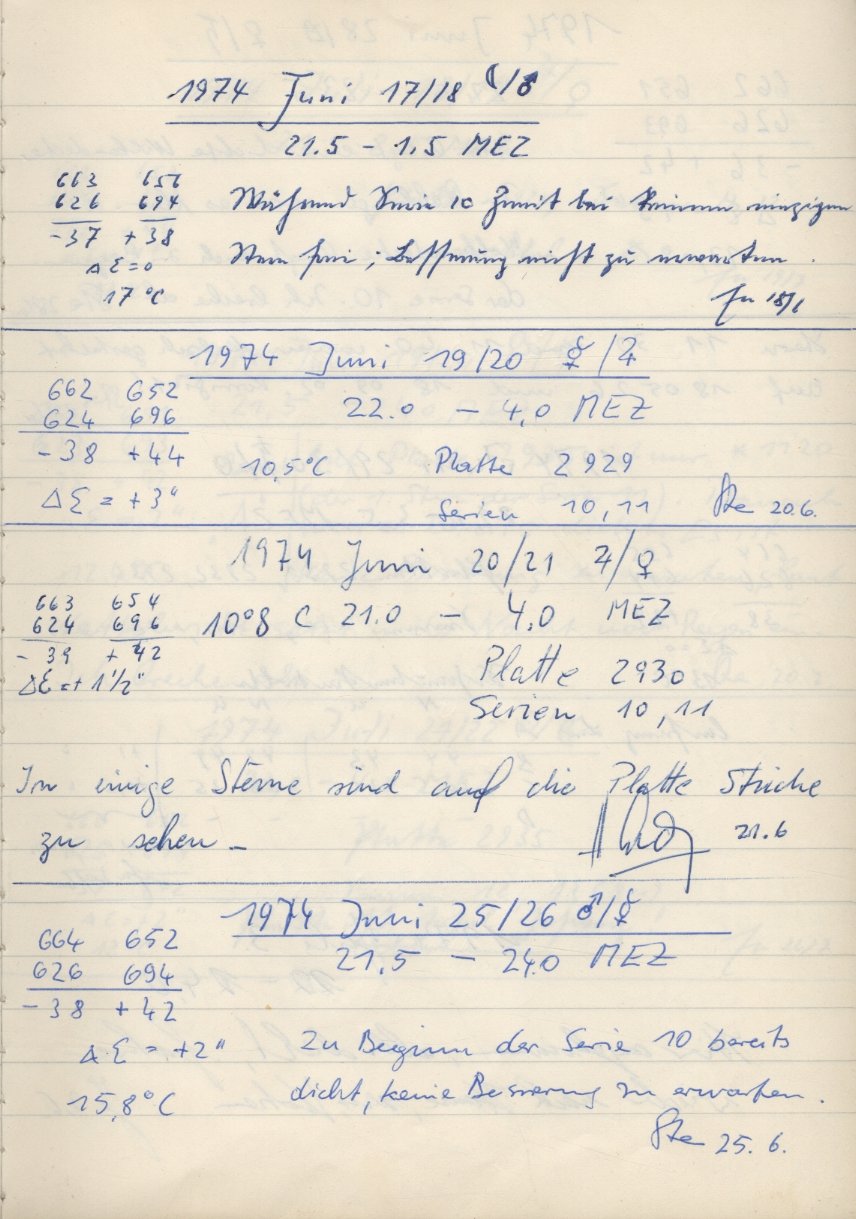 1974 Juni 17/18 ☾/♂
21.5 – 1.5 MEZ
663 656
626 694
-37 +38
Δε=0
17°C
Während Serie 10 Zenit bei keinem einzigen
Stern frei; Besserung nicht zu erwarten.
18/6
1974 Juni 19/20 ☿/♃
662 652
624 696
-38 +44
Δε = +3"
22.0 – 4.0 MEZ
10,5°C Platte 2929
Serien 10,11
Ste 20.6.
1974 Juni 20/21 ♃/♀
663 654
624 696
- 39 + 42
Δε=+1 1/2"
10°8 C 21.0 – 4.0 MEZ
Platte 2930
Serien 10,11
In einige Sterne sind auf die Platte Striche
zu sehen –
21.6
1974 Juni 25/26 ♂/☿
664 652
626 694
-38 +42
21.5 – 24.0 MEZ
Δε = +2"
15,8°C
Zu Beginn der Serie 10 bereits
dicht, keine Besserung zu erwarten.
Ste 25.6.